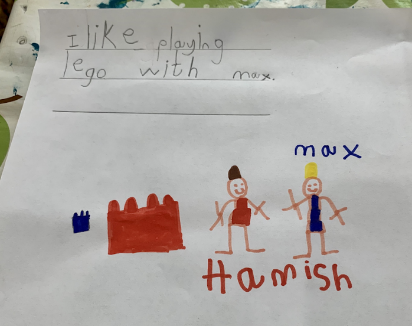 I like playing
lego with max.
max
Hamish